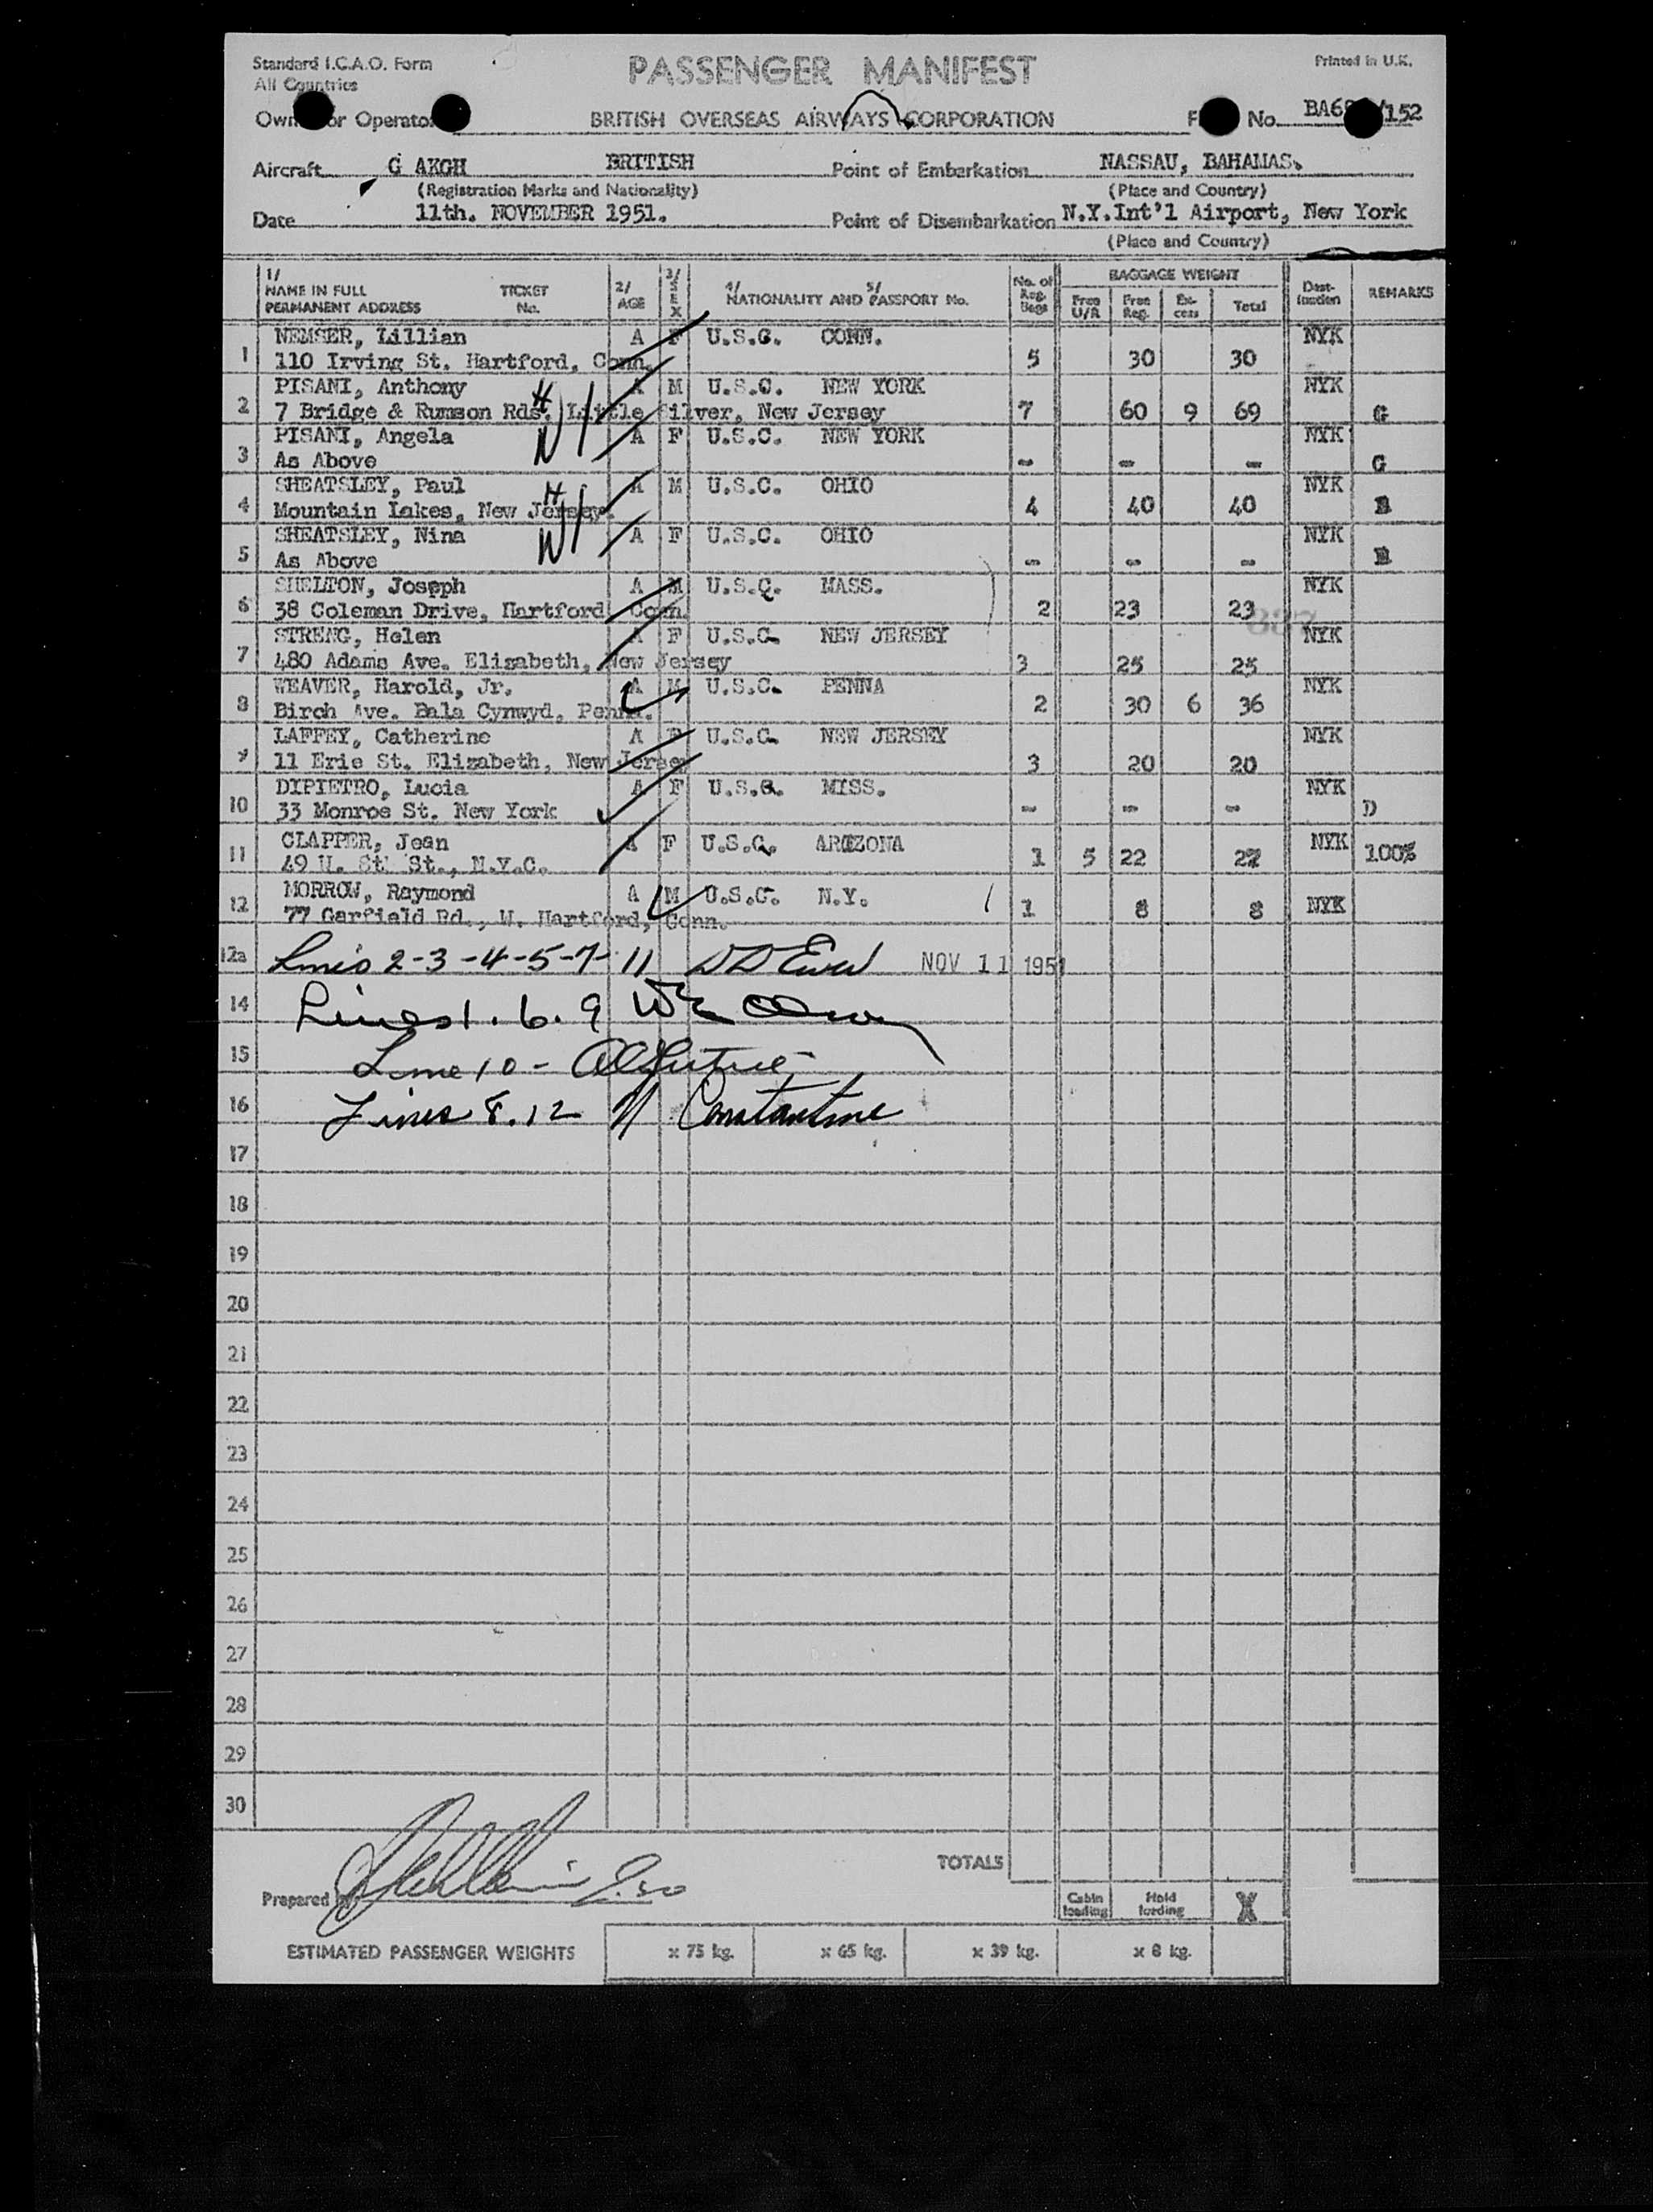 Standard I.C.A.O. Form
All Countries
PASSENGER MANIFEST
Printed in U.K.
or Operator
BRITISH OVERSEAS AIRWAYS CORPORATION
No. BA6 /152
Aircraft G AKGH BRITISH
Point of Embarkation NASSAU, BAHAMAS.
(Registration Marks and Nationality)
(Place and Country)
Date 11th. NOVEMBER 1951.
Point of Disembarkation N.Y.Int'l Airport, New York
(Place and Country)
1/ NAME IN FULL PERMANENT ADDRESS TICKET No. 2/ AGE 3/ SEX 4/ NATIONALITY AND 5/ PASSPORT No. No. of Reg. Bags BAGGAGE WEIGHT Free U/R Free Reg. Ex-cess Total Dest-ination REMARKS
1 NEMSER, Lillian A F U.S.C. CONN. NYK
110 Irving St. Hartford, Conn. 5 30 30
2 PISANI, Anthony H A M U.S.C. NEW YORK NYK
7 Bridge & Rumson Rds. Little Silver, New Jersey 7 60 9 69 G
3 PISANI, Angela W A F U.S.C. NEW YORK NYK
As Above - - - G
4 SHEATSLEY, Paul H A M U.S.C. OHIO NYK
Mountain Lakes, New Jersey. 4 40 40
5 SHEATSLEY, Nina W A F U.S.C. OHIO NYK
As Above - - -
6 SHELTON, Joseph A M U.S.C. MASS. NYK
38 Coleman Drive, Hartford Conn. 2 23 23
7 STRENG, Helen A F U.S.C. NEW JERSEY NYK
480 Adams Ave. Elizabeth, New Jersey 3 25 25
8 WEAVER, Harold, Jr. A M U.S.C. PENNA NYK
Birch Ave. Bala Cynwyd, Penna. 2 30 6 36
9 LAFFEY, Catherine A F U.S.C. NEW JERSEY NYK
11 Erie St. Elizabeth, New Jersey 3 20 20
10 DIPIETRO, Lucia A F U.S.C. MISS. NYK
33 Monroe St. New York - - - D
11 CLAPPER, Jean A F U.S.C. ARIZONA NYK
49 St., N.Y.C. 1 5 22 27 100%
12 MORROW, Raymond A M U.S.C. N.Y.
77 Garfield Rd., W. Hartford, Conn. 1 8 8 NYK
12a Lines 2-3-4-5-7-11 NOV 11 1951
14 Lines 1. 6. 9
15 Line 10 -
16 Lines 8.12 N Constantine
17
18
19
20
21
22
23
24
25
26
27
28
29
30
TOTALS
Prepared by
Cabin loading Hold loading X
ESTIMATED PASSENGER WEIGHTS x 75 kg. x 65 kg. x 39 kg. x 8 kg.